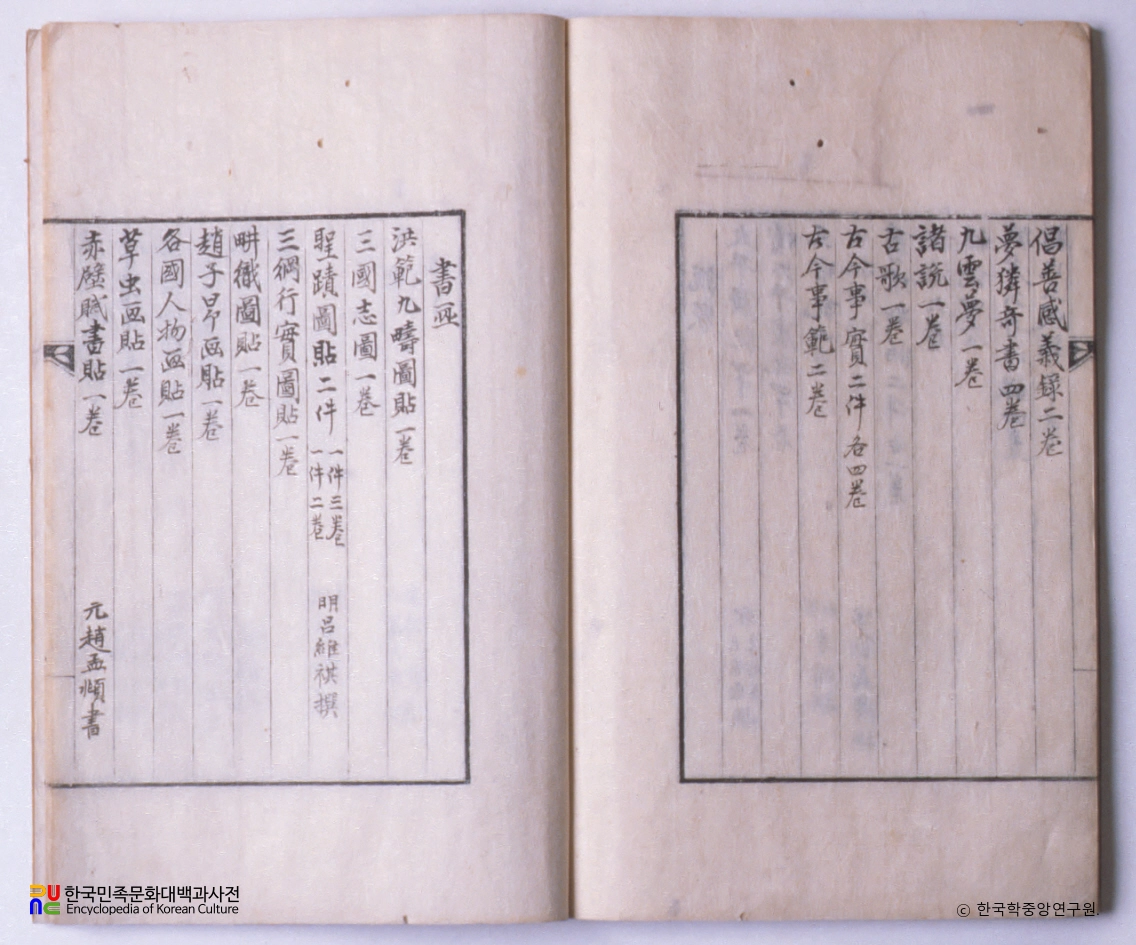 倡善感義錄二卷
夢獜奇書四卷
九雲夢一卷
諸說一卷
古歌一卷
古今事實二件各四卷
古今事範二卷
書画
洪範九疇圖貼一卷
三國志圖一卷
聖蹟圖貼二件 一件三卷 一件二卷 明呂維祺撰
三綱行實圖貼一卷
耕織圖貼一卷
趙子昂画貼一卷
各國人物画貼一卷
草虫画貼一卷
赤壁賦書貼一卷 元趙孟頫書
한국민족문화대백과사전
Encyclopedia of Korean Culture
© 한국학중앙연구원